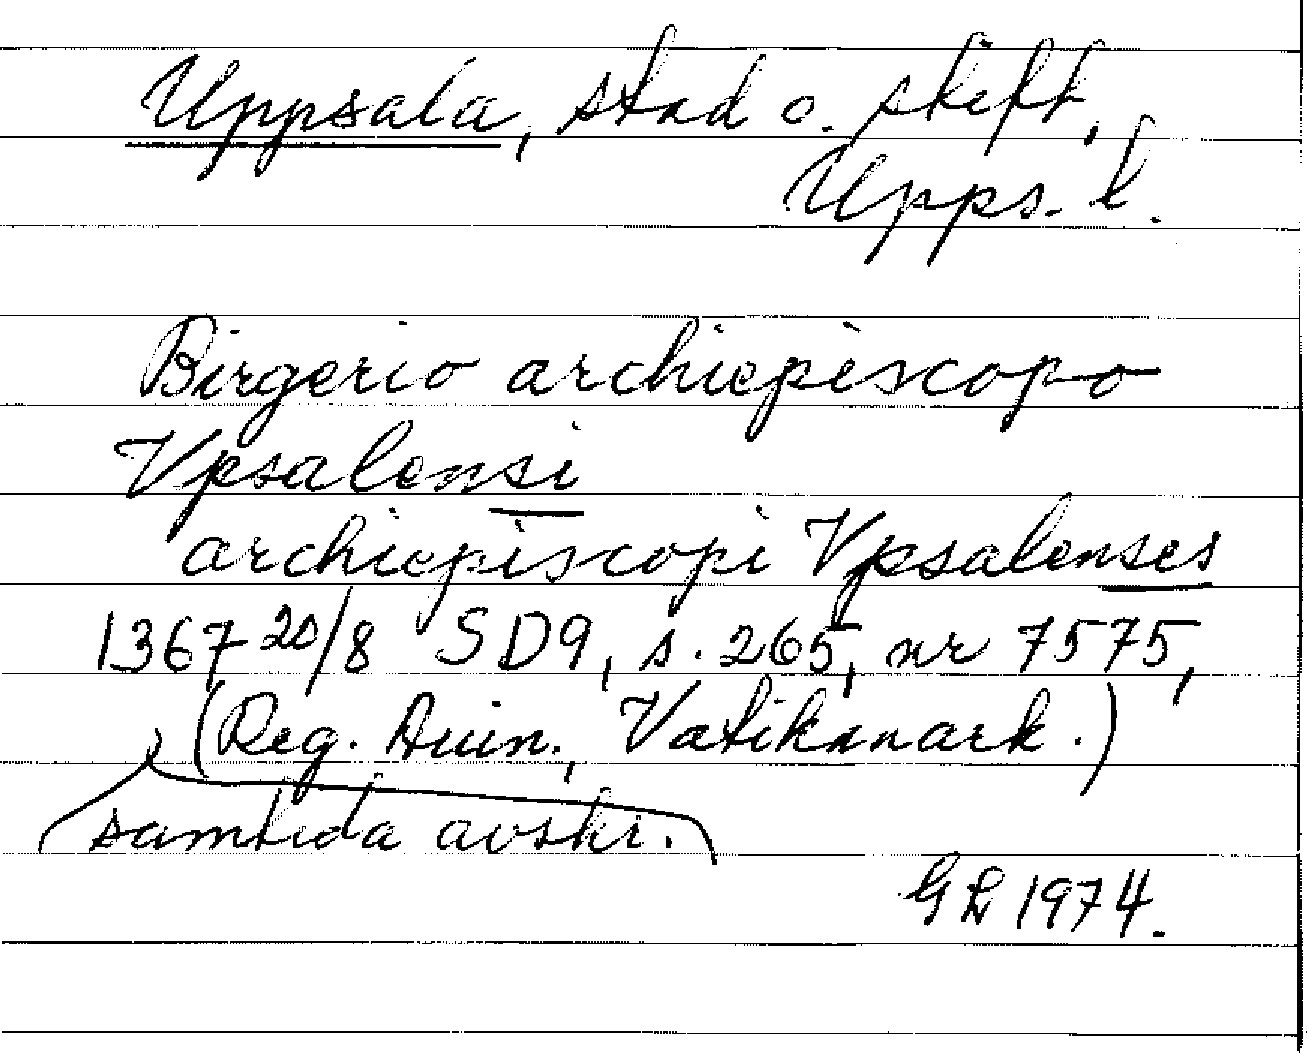 Uppsala, stad o. stift,
Upps. l.
Birgerio archiepiscopo
Vpsalensi
archiepiscopi Vpsalenses
1367 20/8 SD9, s. 265, nr 7575,
(Reg. Auin., Vatikanark.)
samtida avskr.
GL 1974.